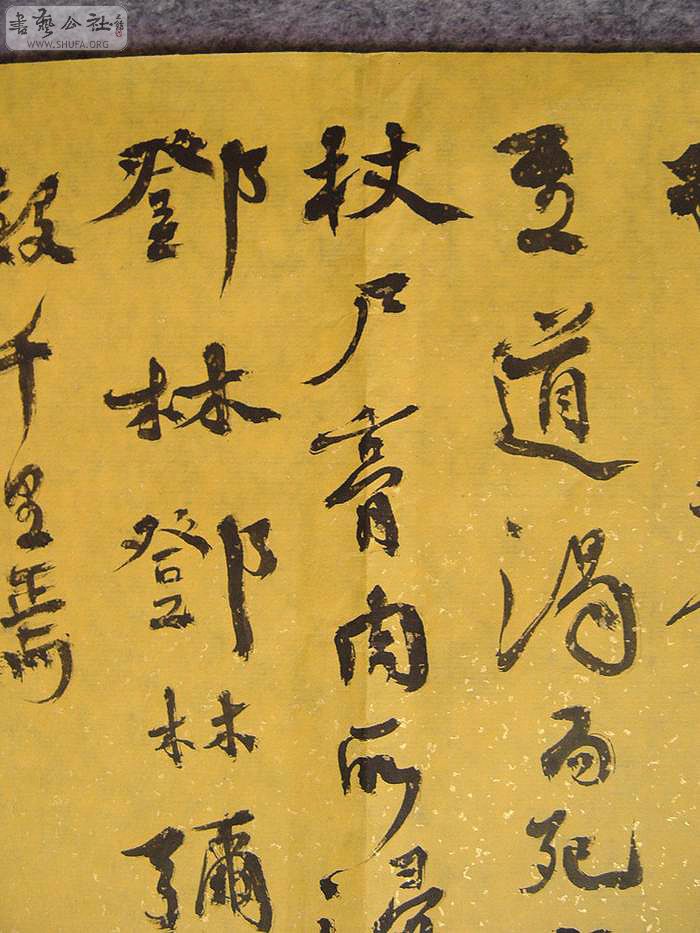 書藝公社
WWW.SHUFA.ORG
至道渴而死
杖尸膏肉所
鄧林鄧林彌
數千里焉